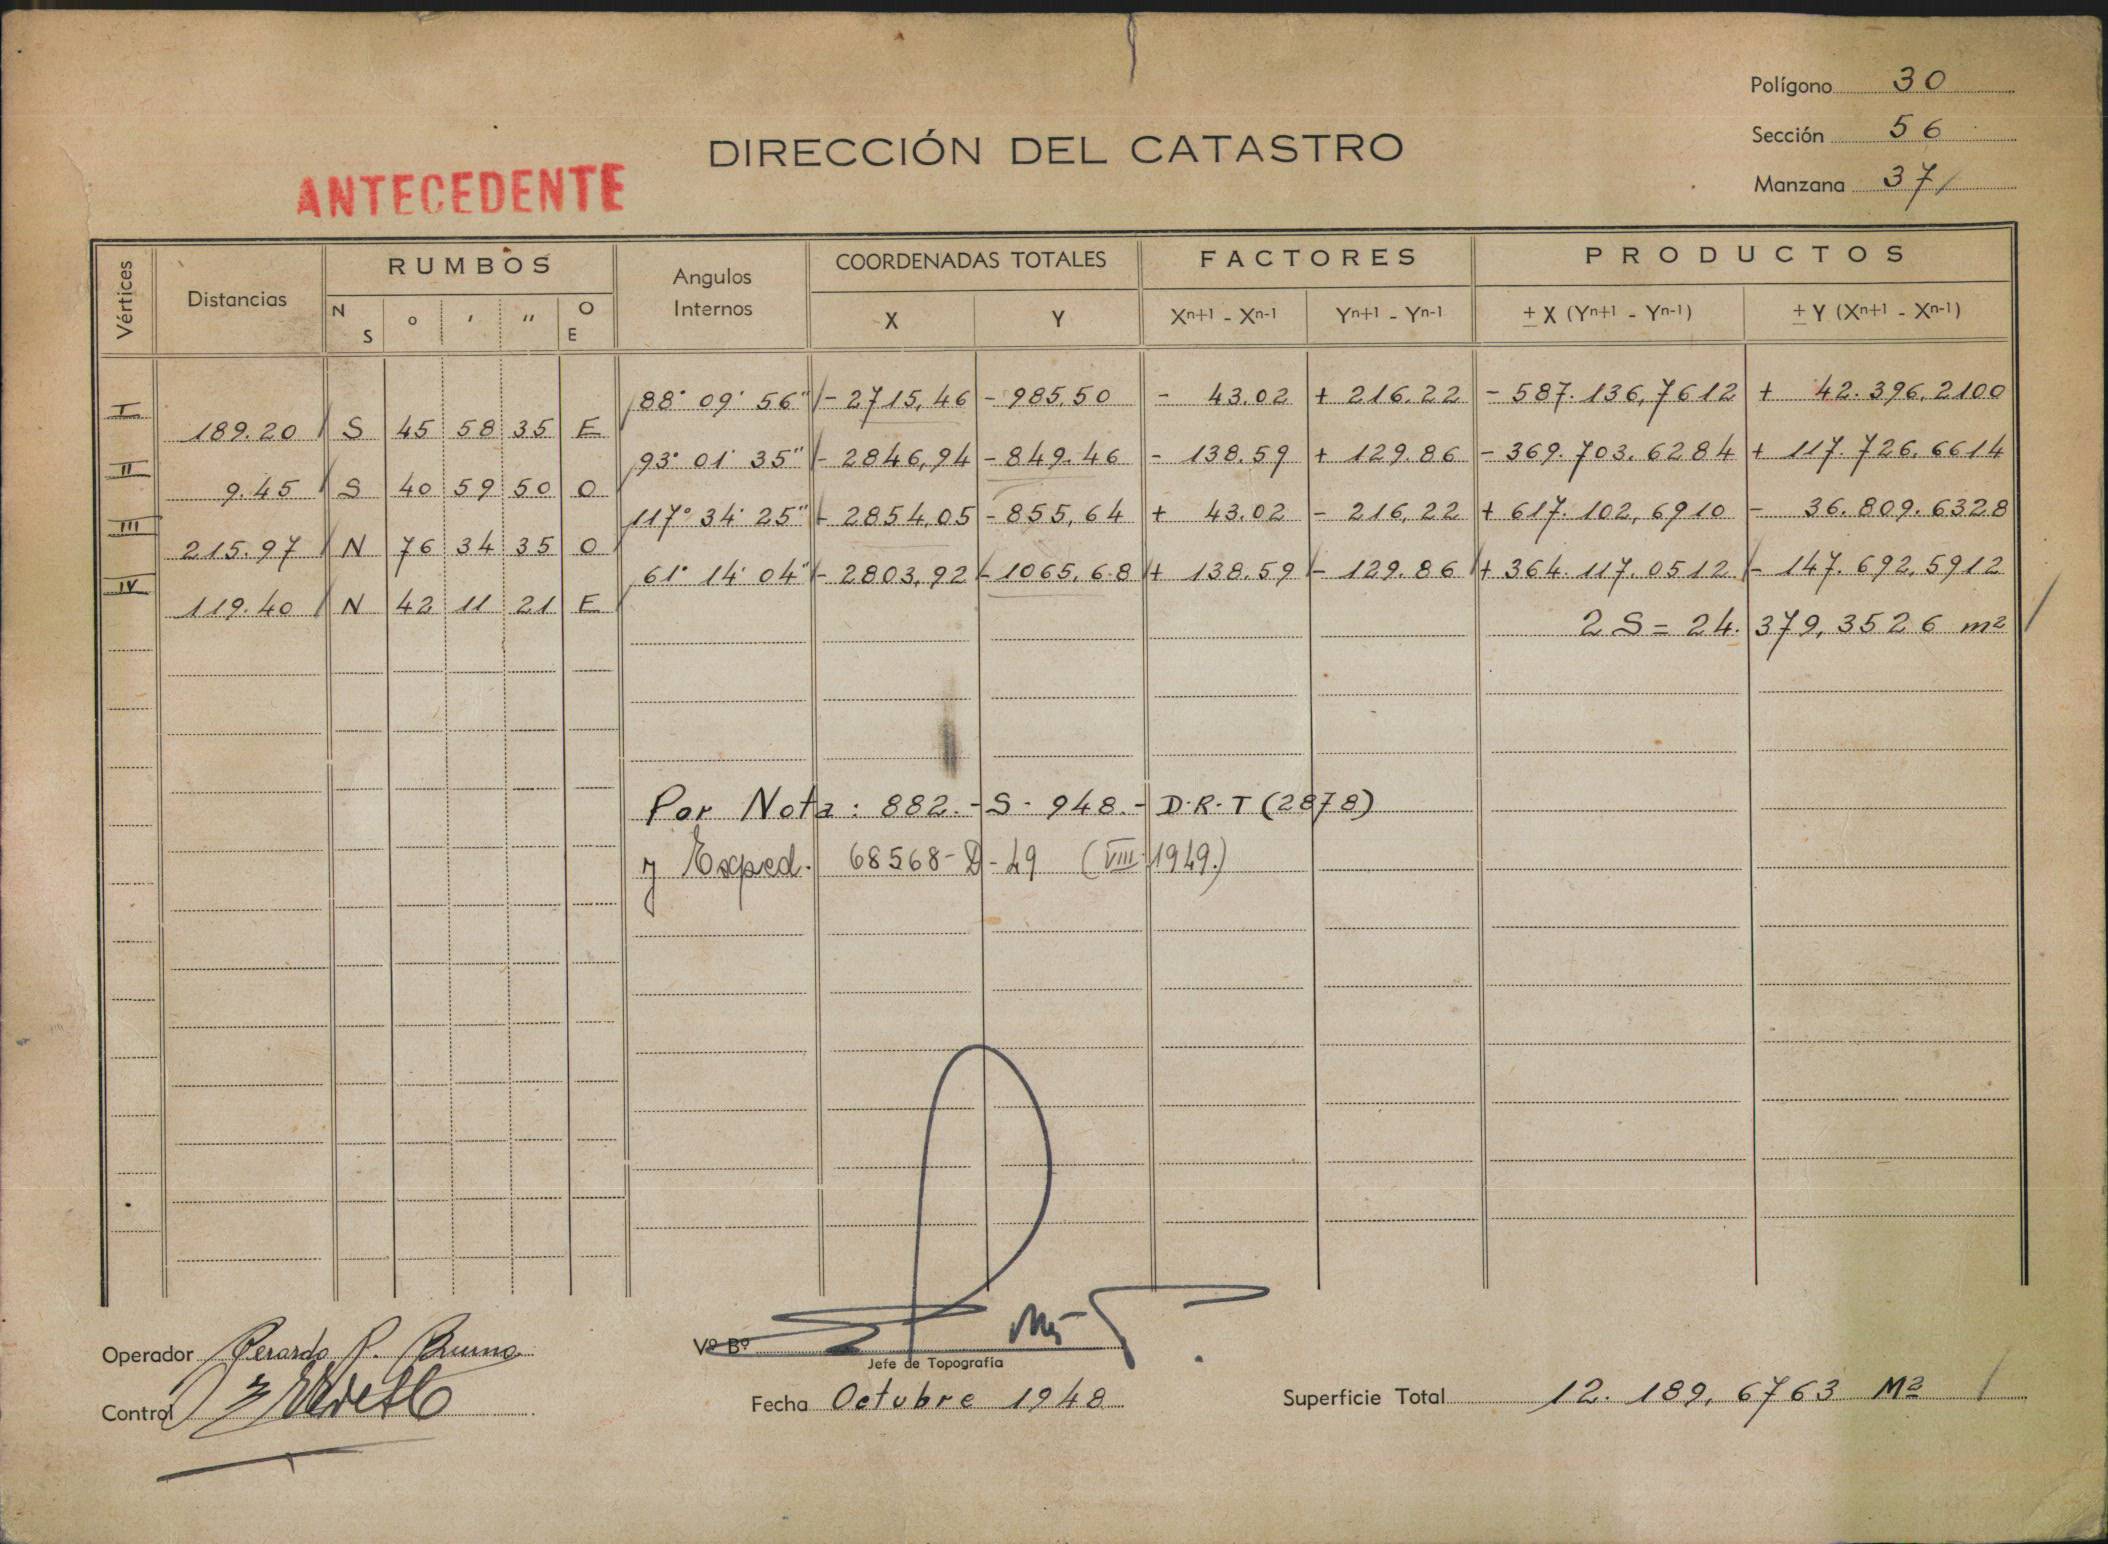 Polígono 30
DIRECCIÓN DEL CATASTRO
Sección 56
ANTECEDENTE
Manzana 37
Vértices Distancias RUMBOS Angulos Internos COORDENADAS TOTALES FACTORES PRODUCTOS
N S ° ' " O E X Y Xn+1 - Xn-1 Yn+1 - Yn-1 ± X (Yn+1 - Yn-1) ± Y (Xn+1 - Xn-1)
I 88° 09' 56" - 2715,46 - 985,50 - 43.02 + 216.22 - 587.136,7612 + 42.396,2100
189.20 S 45 58 35 E
II 93° 01' 35" - 2846,94 - 849.46 - 138.59 + 129.86 - 369.703.6284 + 117.726.6614
9.45 S 40 59 50 O
III 117° 34' 25" - 2854,05 - 855,64 + 43.02 - 216,22 + 617.102,6910 - 36.809.6328
215.97 N 76 34 35 O
IV 61° 14' 04" - 2803,92 - 1065,68 + 138.59 - 129.86 + 364.117.0512 - 147.692,5912
119.40 N 42 11 21 E
2 S = 24.379,3526 m2
Por Nota: 882.- S - 948.- D.R.T (2878)
y Exped. 68568-D-49 (VIII 1949.)
Operador Gerardo P. Bruno
Vº Bº
Jefe de Topografía
Control
Fecha Octubre 1948
Superficie Total 12.189,6763 M2